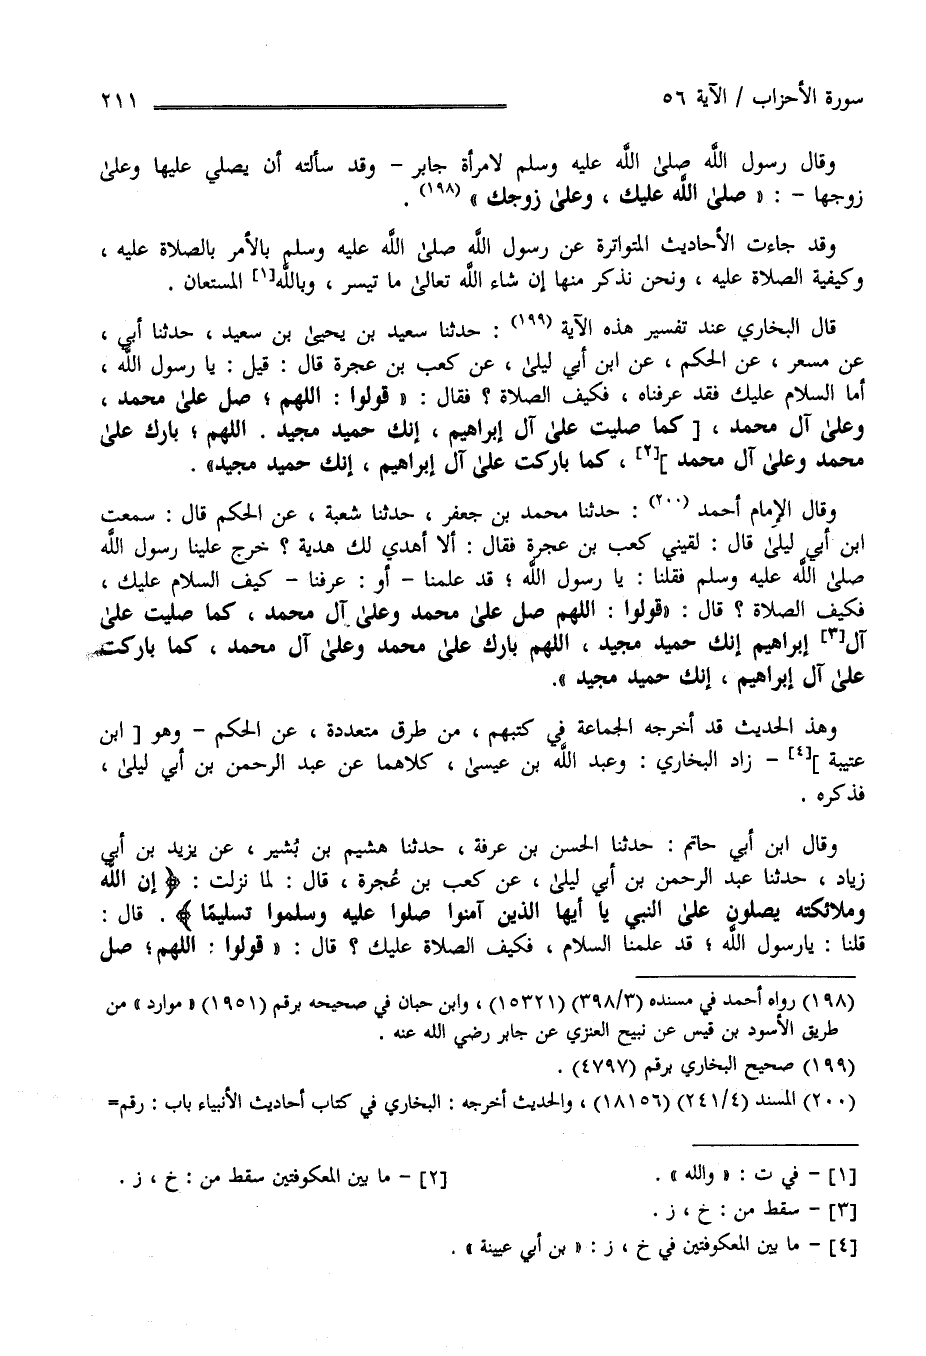 سورة الأحزاب / الآية ٥٦ ٢١١
وقال رسول اللَّه صلىٰ اللَّه عليه وسلم لامرأة جابر – وقد سألته أن يصلي عليها وعلىٰ
زوجها – : « صلىٰ اللَّه عليك ، وعلىٰ زوجك » (١٩٨) .
وقد جاءت الأحاديث المتواترة عن رسول اللَّه صلىٰ اللَّه عليه وسلم بالأمر بالصلاة عليه ،
وكيفية الصلاة عليه ، ونحن نذكر منها إن شاء اللَّه تعالىٰ ما تيسر ، وباللَّه[١] المستعان .
قال البخاري عند تفسير هذه الآية (١٩٩) : حدثنا سعيد بن يحيىٰ بن سعيد ، حدثنا أبي ،
عن مسعر ، عن الحكم ، عن ابن أبي ليلىٰ ، عن كعب بن عجرة قال : قيل : يا رسول اللَّه ،
أما السلام عليك فقد عرفناه ، فكيف الصلاة ؟ فقال : « قولوا : اللهم ؛ صل علىٰ محمد ،
وعلىٰ آل محمد ، [ كما صليت علىٰ آل إبراهيم ، إنك حميد مجيد . اللهم ؛ بارك علىٰ
محمد وعلىٰ آل محمد ][٢] ، كما باركت علىٰ آل إبراهيم ، إنك حميد مجيد» .
وقال الإمام أحمد (٢٠٠) : حدثنا محمد بن جعفر ، حدثنا شعبة ، عن الحكم قال : سمعت
ابن أبي ليلىٰ قال : لقيني كعب بن عجرة فقال : ألا أهدي لك هدية ؟ خرج علينا رسول اللَّه
صلىٰ اللَّه عليه وسلم فقلنا : يا رسول اللَّه ؛ قد علمنا – أو : عرفنا – كيف السلام عليك ،
فكيف الصلاة ؟ قال : «قولوا : اللهم صل علىٰ محمد وعلىٰ آل محمد ، كما صليت علىٰ
آل[٣] إبراهيم إنك حميد مجيد ، اللهم بارك علىٰ محمد وعلىٰ آل محمد ، كما باركت
علىٰ آل إبراهيم ، إنك حميد مجيد ».
وهذ الحديث قد أخرجه الجماعة في كتبهم ، من طرق متعددة ، عن الحكم – وهو [ ابن
عتيبة ][٤] – زاد البخاري : وعبد اللَّه بن عيسىٰ ، كلاهما عن عبد الرحمن بن أبي ليلىٰ ،
فذكره .
وقال ابن أبي حاتم : حدثنا الحسن بن عرفة ، حدثنا هشيم بن بُشير ، عن يزيد بن أبي
زياد ، حدثنا عبد الرحمن بن أبي ليلىٰ ، عن كعب بن عُجرة ، قال : لما نزلت : ﴿ إن اللَّه
وملائكته يصلون علىٰ النبي يا أيها الذين آمنوا صلوا عليه وسلموا تسليمًا ﴾ . قال :
قلنا : يارسول اللَّه ؛ قد علمنا السلام ، فكيف الصلاة عليك ؟ قال : « قولوا : اللهم؛ صل
(١٩٨) رواه أحمد في مسنده (٣٩٨/٣) (١٥٣٢١) ، وابن حبان في صحيحه برقم (١٩٥١) « موارد » من
طريق الأسود بن قيس عن نبيح العنزي عن جابر رضي الله عنه .
(١٩٩) صحيح البخاري برقم (٤٧٩٧) .
(٢٠٠) المسند (٢٤١/٤) (١٨١٥٦) ، والحديث أخرجه : البخاري في كتاب أحاديث الأنبياء باب : رقم=
[١] – في ت : « والله » . [٢] – ما بين المعكوفتين سقط من : خ ، ز .
[٣] – سقط من : خ ، ز .
[٤] – ما بين المعكوفتين في خ ، ز : « بن أبي عيينة » .